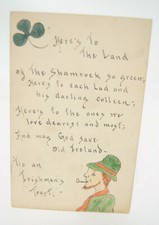 Here's To
The Land
of The Shamrock so green,
Here's to each lad and
his darling Colleen;
Here's to the ones we
love dearest and most;
And may God save
Old Ireland.
Tis an
Irishman's
Toast.